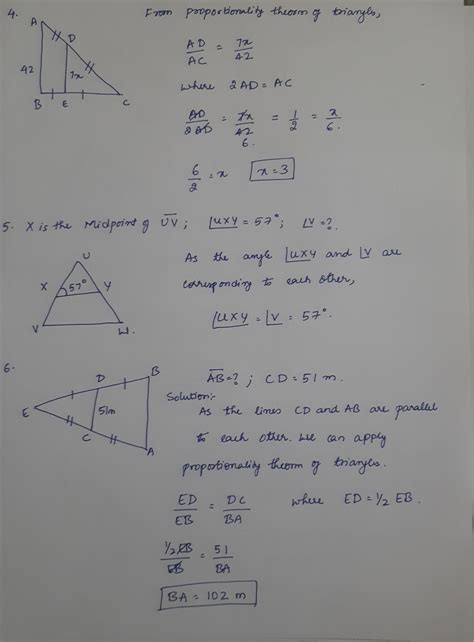 4. From proportionality theorm of triangles,
A
D
42
7x
B E C
AD/AC = 7x/42
where 2AD = AC
AD/2AD = 7x/42 = 1/2 = x/6.
6.
6/2 = x x = 3
5. X is the Midpoint of UV; ∠UXY = 57°; ∠V = ?.
U
X 57° Y
V W.
As the angle ∠UXY and ∠V are
corresponding to each other,
∠UXY = ∠V = 57°.
6.
B
D
E
51m
C
A
AB = ? ; CD = 51 m.
Solution:-
As the lines CD and AB are parallel
to each other. We can apply
proportionality theorm of triangles.
ED/EB = DC/BA where ED = 1/2 EB.
1/2 EB/EB = 51/BA
BA = 102 m